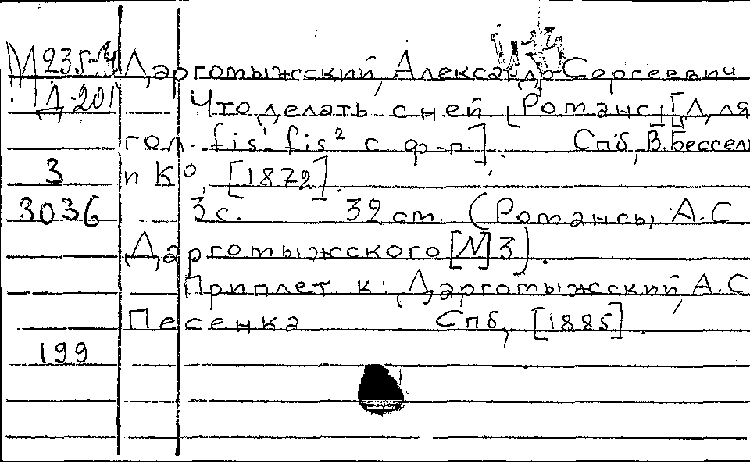 М 235-4 Даргомыжский, Александр Сергеевич
Д-201 Что делать с ней [Романс] [Для
гол. fis¹-fis² с ф-п.]. Спб, В. Бессель
3 и К°, [1872].
3036 3 с. 32 cm (Романсы А.С.
Даргомыжского [N] 3).
Приплет. к: Даргомыжский, А.С.
Песенка Спб, [1885].
199